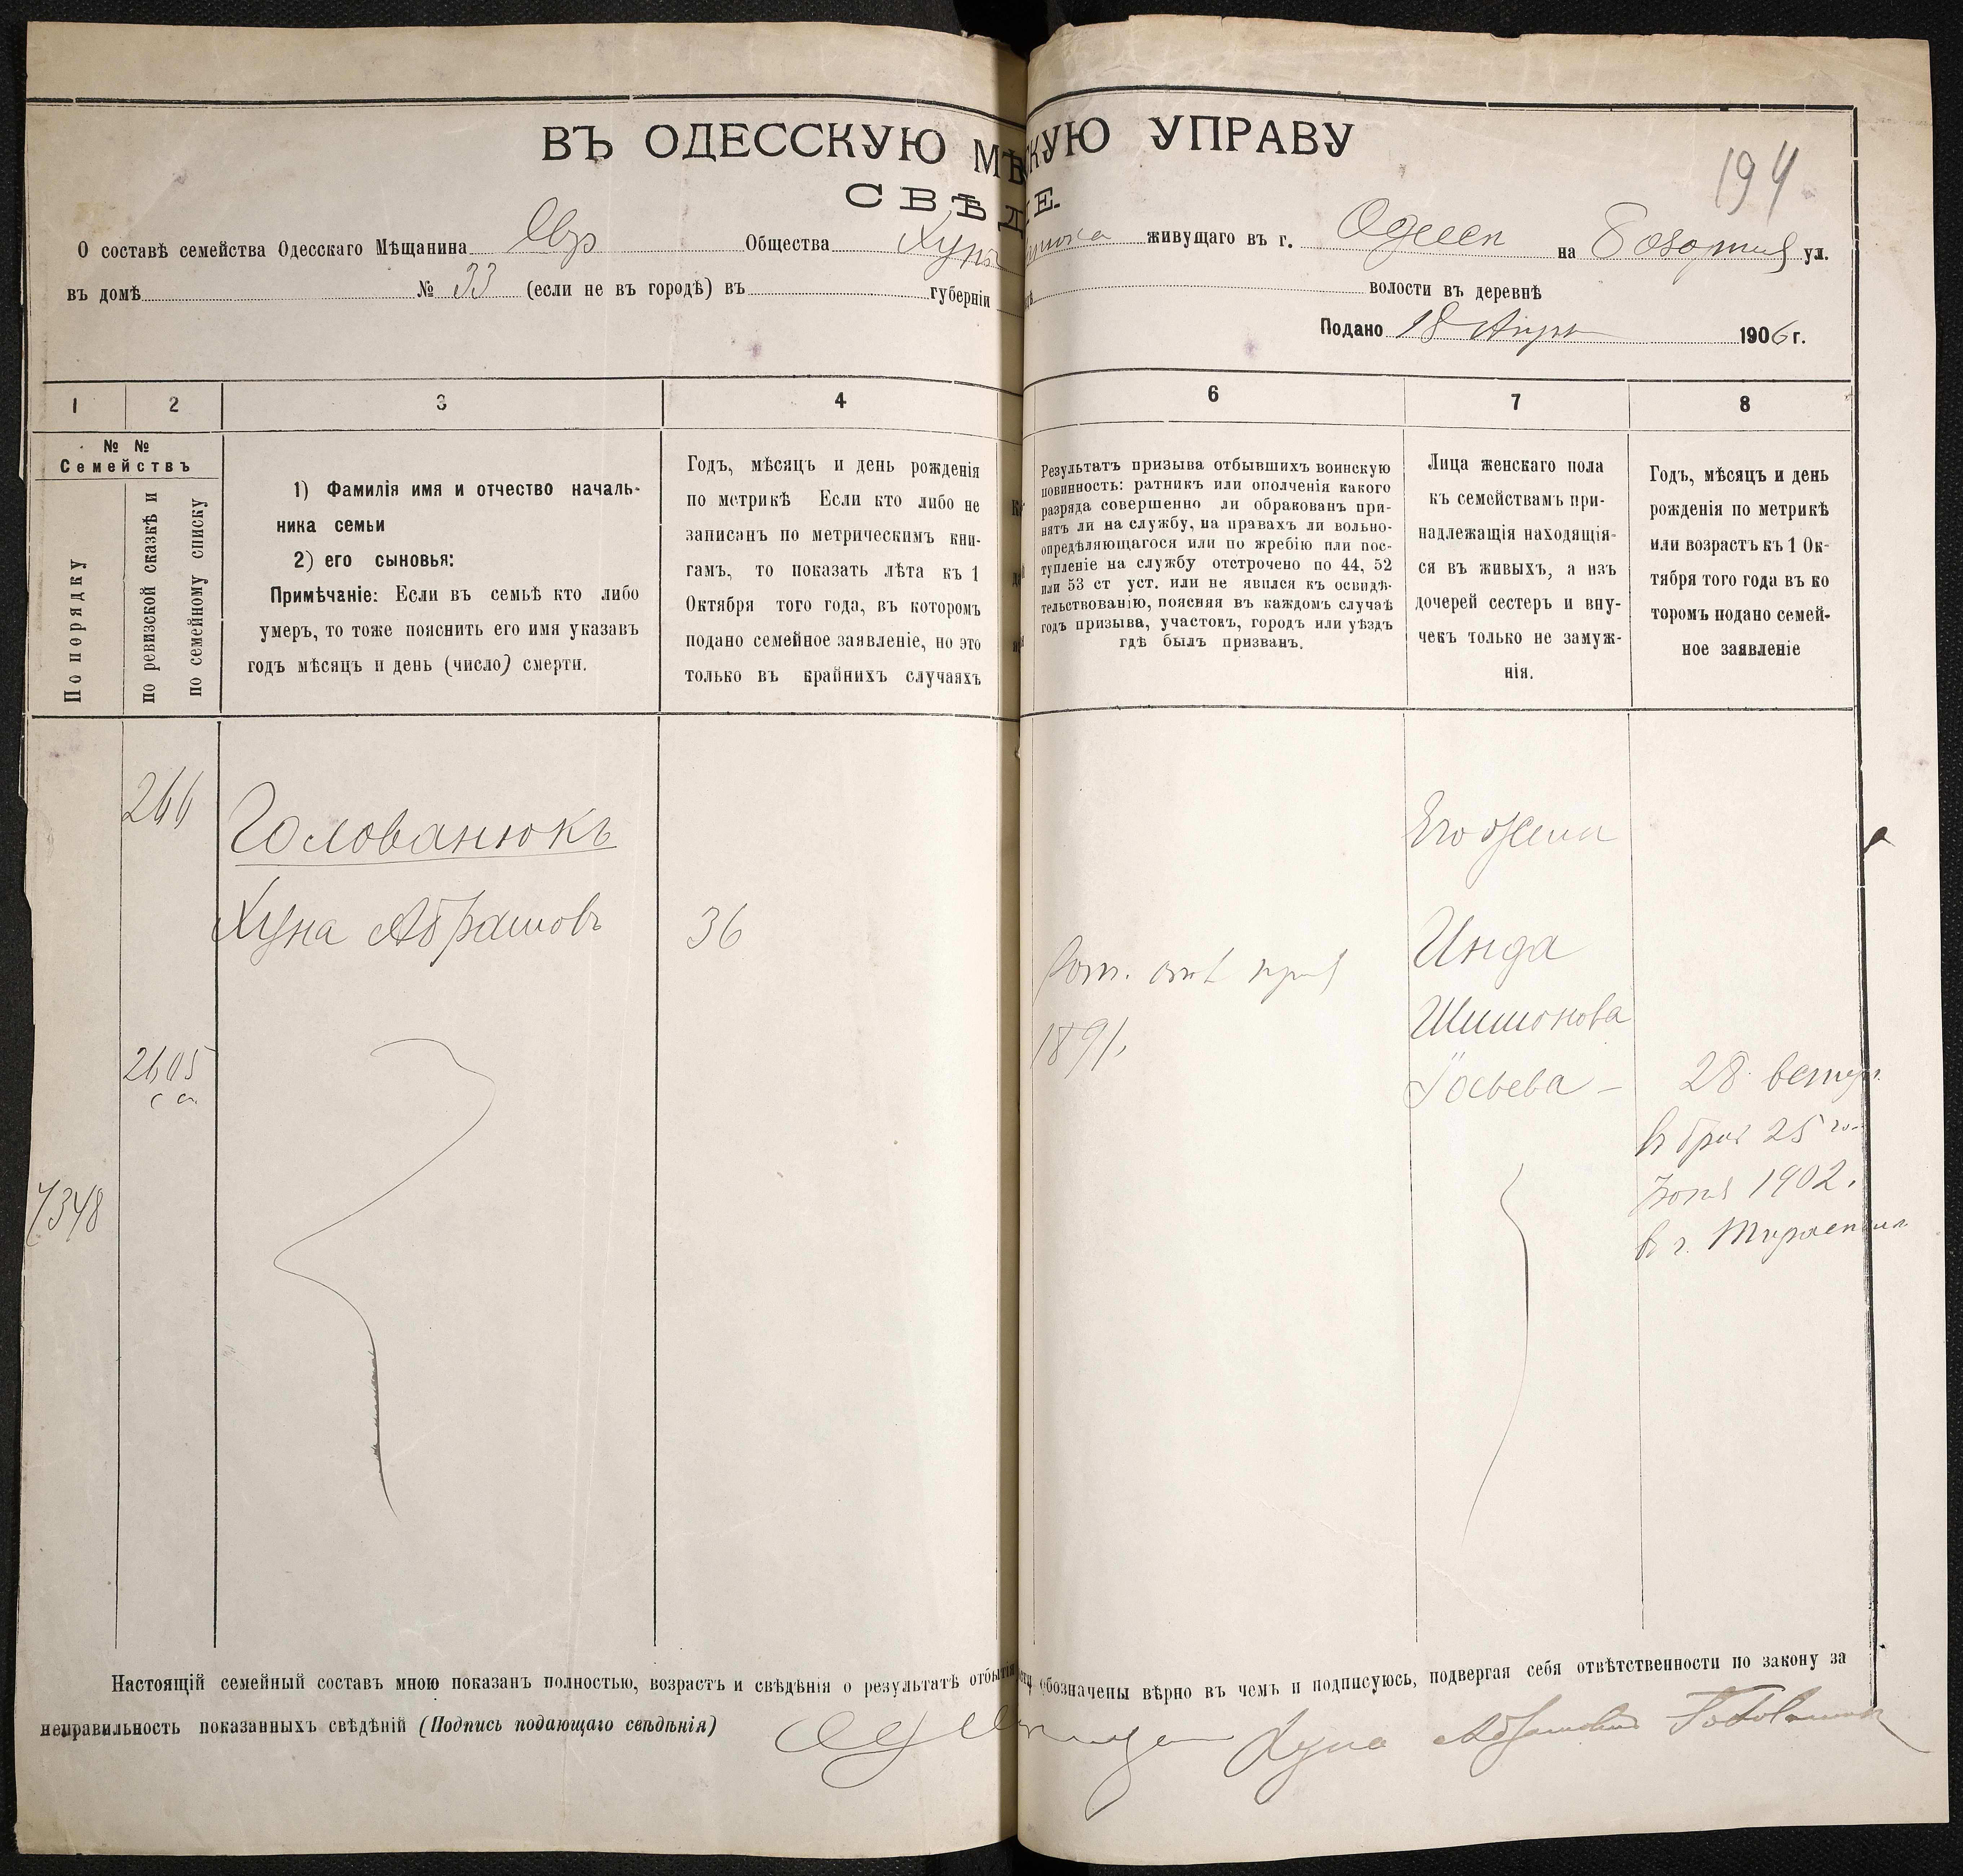 ВЪ ОДЕССКУЮ МѢ КУЮ УПРАВУ
194
СВѢД Е.
О составѣ семейства Одесскаго Мѣщанина Евр Общества живущаго въ г. Одессѣ на ул.
въ домѣ № 33 (если не въ городѣ) въ губерніи волости въ деревнѣ
Подано 18 1906 г.
1 2 3 4
6 7 8
№ №
Семействъ
По порядку
по ревизской сказкѣ и
по семейному списку
1) Фамилія имя и отчество началь-
ника семьи
2) его сыновья:
Примѣчаніе: Если въ семьѣ кто либо
умеръ, то тоже пояснить его имя указавъ
годъ мѣсяцъ и день (число) смерти.
Годъ, мѣсяцъ и день рожденія
по метрикѣ Если кто либо не
записанъ по метрическимъ кни-
гамъ, то показать лѣта къ 1
Октября того года, въ которомъ
подано семейное заявленіе, но это
только въ крайнихъ случаяхъ
Результатъ призыва отбывшихъ воинскую
повинность: ратникъ или ополченія какого
разряда совершенно ли обракованъ при-
нятъ ли на службу, на правахъ ли вольно-
опредѣляющагося или по жребію или пос-
тупленіе на службу отстрочено по 44, 52
или 53 ст уст. или не явился къ освидѣ-
тельствованію, поясняя въ каждомъ случаѣ
годъ призыва, участокъ, городъ или уѣздъ
гдѣ былъ призванъ.
Лица женскаго пола
къ семействамъ при-
надлежащія находящія-
ся въ живыхъ, а изъ
дочерей сестеръ и вну-
чекъ только не замуж-
нія.
Годъ, мѣсяцъ и день
рожденія по метрикѣ
или возрастъ къ 1 Ок-
тября того года въ ко
торомъ подано семей-
ное заявленіе
266
Голованюкъ
Хуна Абрамовъ
36
2605
7348
1891.
Его жена
Инда
Шимонова
28
25
1902.
въ г.
Настоящій семейный составъ мною показанъ полностью, возрастъ и свѣдѣнія о результатѣ отбытія обозначены вѣрно въ чемъ и подписуюсь, подвергая себя отвѣтственности по закону за
неправильность показанныхъ свѣдѣній (Подпись подающаго свѣдѣнія)
Хуна